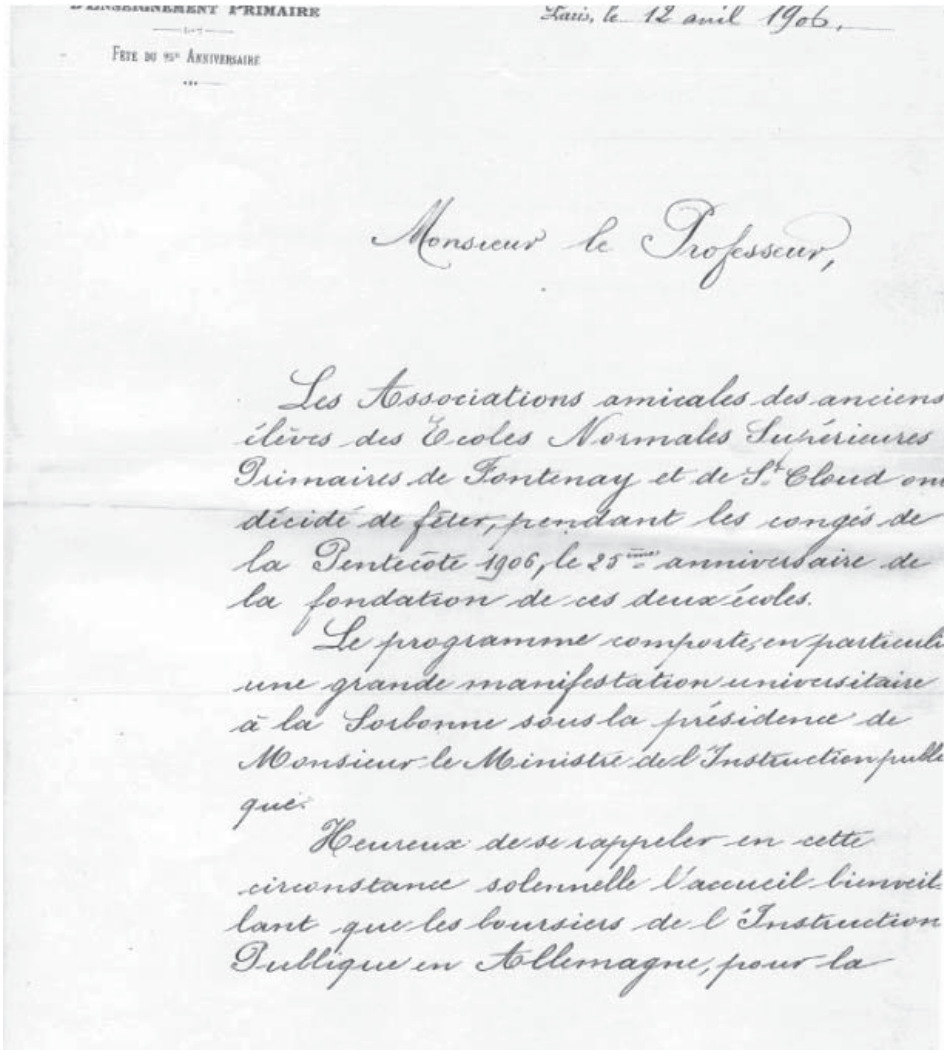 D'ENSEIGNEMENT PRIMAIRE
Paris, le 12 avril 1906.
FÊTE DU 25e ANNIVERSAIRE
Monsieur le Professeur,
Les Associations amicales des anciens
élèves des Ecoles Normales Supérieures
Primaires de Fontenay et de St. Cloud ont
décidé de fêter, pendant les congés de
la Pentecôte 1906, le 25ème anniversaire de
la fondation de ces deux écoles.
Le programme comporte, en particuli
une grande manifestation universitaire
à la Sorbonne sous la présidence de
Monsieur le Ministre de l'Instruction publi
que.
Heureux de se rappeler en cette
circonstance solennelle l'accueil bienveil-
lant que les boursiers de l'Instruction
Publique en Allemagne, pour la